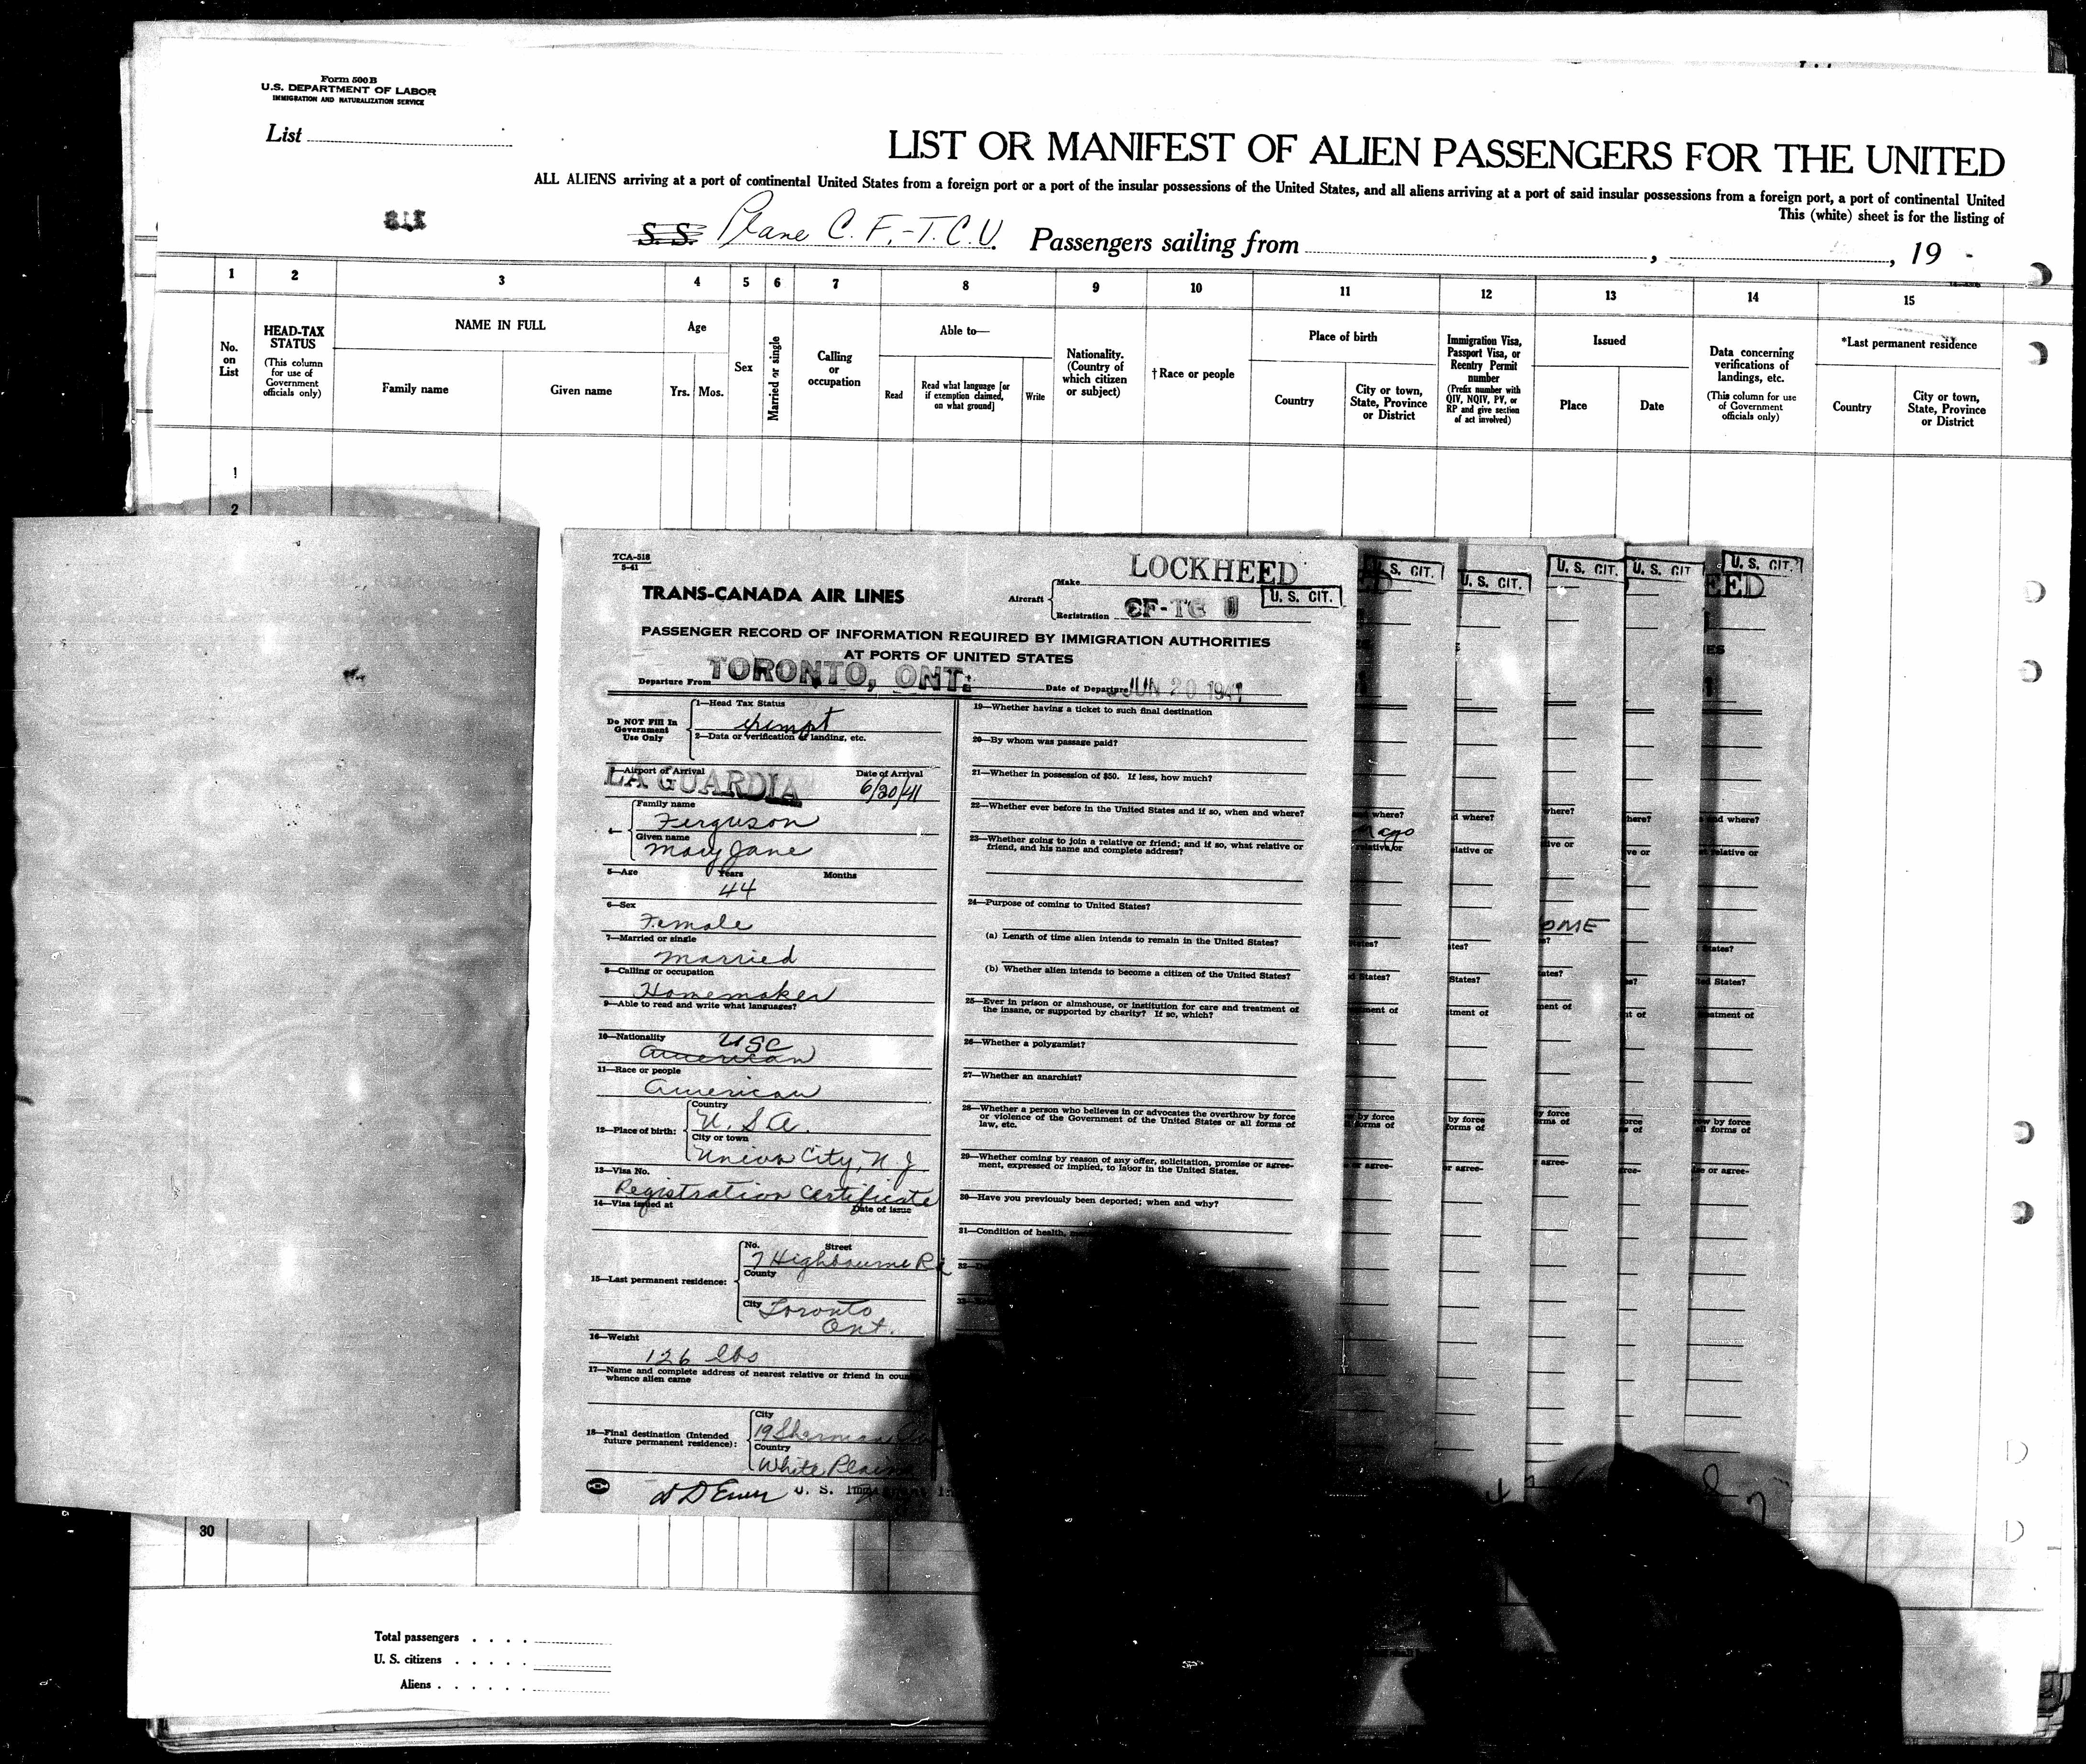 Form 500B
U.S. DEPARTMENT OF LABOR
IMMIGRATION AND NATURALIZATION SERVICE
List
LIST OR MANIFEST OF ALIEN PASSENGERS FOR THE UNITED
ALL ALIENS arriving at a port of continental United States from a foreign port or a port of the insular possessions of the United States, and all aliens arriving at a port of said insular possessions from a foreign port, a port of continental United
This (white) sheet is for the listing of
S.S. Plane C. F.-T.C.U. Passengers sailing from , , 19
1 2 3 4 5 6 7 8 9 10 11 12 13 14 15
No. on List
HEAD-TAX STATUS
(This column for use of Government officials only)
NAME IN FULL
Family name
Given name
Age
Yrs. Mos.
Sex
Married or single
Calling or occupation
Able to—
Read
Read what language [or if exemption claimed, on what ground]
Write
Nationality. (Country of which citizen or subject)
† Race or people
Place of birth
Country
City or town, State, Province or District
Immigration Visa, Passport Visa, or Reentry Permit number
(Prefix number with QIV, NQIV, PV, or RP and give section of act involved)
Issued
Place
Date
Data concerning verifications of landings, etc.
(This column for use of Government officials only)
*Last permanent residence
Country
City or town, State, Province or District
1
2
TCA-518
5-41
TRANS-CANADA AIR LINES
Aircraft
Make LOCKHEED
Registration CF-TC U
U. S. CIT.
PASSENGER RECORD OF INFORMATION REQUIRED BY IMMIGRATION AUTHORITIES
AT PORTS OF UNITED STATES
Departure From TORONTO, ONT. Date of Departure JUN 20 1941
Do NOT Fill In Government Use Only
1—Head Tax Status
exempt
2—Data or verification of landing, etc.
Airport of Arrival Date of Arrival
LA GUARDIA 6/20/41
Family name
Ferguson
Given name
Mary Jane
5—Age Years Months
44
6—Sex
Female
7—Married or single
Married
8—Calling or occupation
Homemaker
9—Able to read and write what languages?
10—Nationality USC
American
11—Race or people
American
12—Place of birth:
Country
U. S. A.
City or town
Union City, N J
13—Visa No.
Registration Certificate
14—Visa issued at Date of issue
15—Last permanent residence:
No. Street
7 Highbourne Rd
County
City Toronto
Ont.
16—Weight
126 lbs
17—Name and complete address of nearest relative or friend in
whence alien came
18—Final destination (Intended future permanent residence):
City
19 Sherman
Country
White Plains
U. S.
19—Whether having a ticket to such final destination
20—By whom was passage paid?
21—Whether in possession of $50. If less, how much?
22—Whether ever before in the United States and if so, when and where?
23—Whether going to join a relative or friend; and if so, what relative or
friend, and his name and complete address?
24—Purpose of coming to United States?
(a) Length of time alien intends to remain in the United States?
(b) Whether alien intends to become a citizen of the United States?
25—Ever in prison or almshouse, or institution for care and treatment of
the insane, or supported by charity? If so, which?
26—Whether a polygamist?
27—Whether an anarchist?
28—Whether a person who believes in or advocates the overthrow by force
or violence of the Government of the United States or all forms of
law, etc.
29—Whether coming by reason of any offer, solicitation, promise or agree-
ment, expressed or implied, to labor in the United States.
30—Have you previously been deported; when and why?
31—Condition of health,
S. CIT.
U. S. CIT.
U. S. CIT.
U. S. CIT
U. S. CIT.
EED
OME
30
Total passengers
U. S. citizens
Aliens